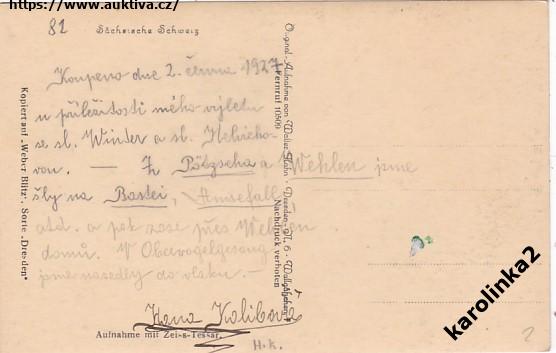 https://www.auktiva.cz/
82
Sächsische Schweiz
Koupeno dne 2. června 1927
u příležitosti mého výletu
se sl. Winder a sl. Helvicho-
vou. — Z Pötzscha a Wehlen jsme
šly na Bastei, Amselfall
atd. a pak zase přes Wehlen
domů. V Obervogelgesang
jsme nasedly do vlaku. —
Hana Kalibová
Aufnahme mit Zeiss-Tessar.
H.K.
Kopiert auf „Weber Blitz", Sorte „Dresden"
Original-Aufnahme von Walter Hahn · Dresden-N. 6 ·
Fernruf 10809
Nachdruck verboten
karolinka2